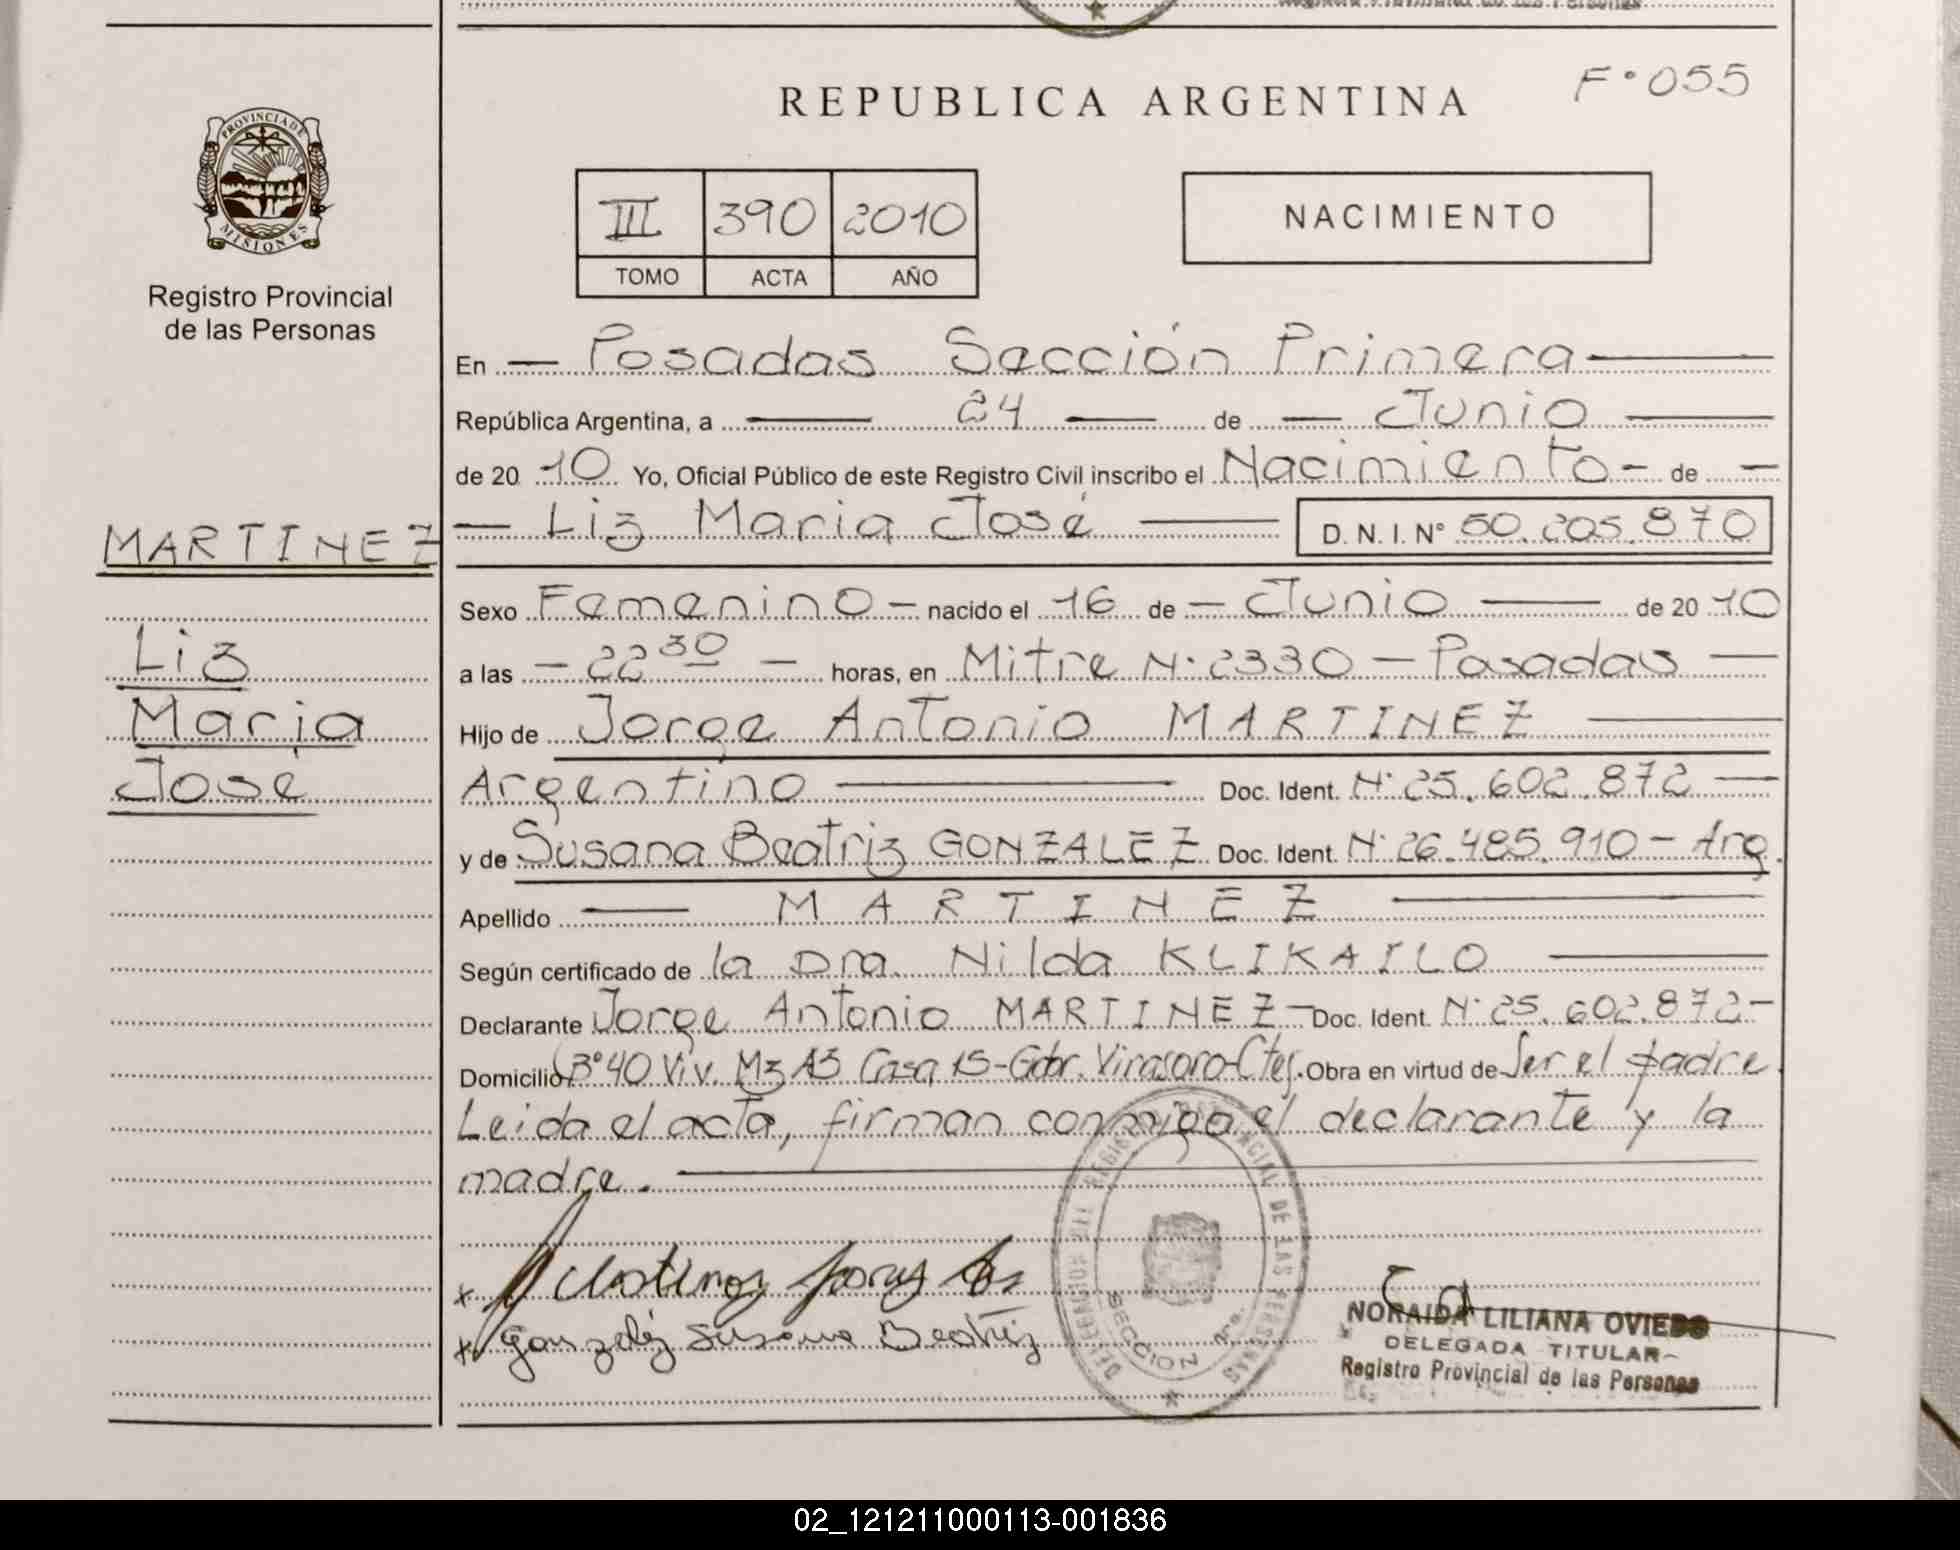 F° 055
REPUBLICA ARGENTINA
PROVINCIA DE
MISIONES
Registro Provincial
de las Personas
III 390 2010
TOMO ACTA AÑO
NACIMIENTO
En Posadas Sección Primera
República Argentina, a 24 de Junio
de 20 10 Yo, Oficial Público de este Registro Civil inscribo el Nacimiento - de
Liz Maria José D. N. I. N° 50.205.870
MARTINEZ
Liz
Maria
José
Sexo Femenino - nacido el 16 de - Junio de 20 10
a las - 22 30 - horas, en Mitre N° 2330 - Posadas
Hijo de Jorge Antonio MARTINEZ
Argentino Doc. Ident. N° 25.602.872
y de Susana Beatriz GONZALEZ Doc. Ident. N° 26.485.910 - Arg.
Apellido MARTINEZ
Según certificado de la Dra. Nilda KLIKAILO
Declarante Jorge Antonio MARTINEZ - Doc. Ident. N° 25.602.872 -
Domicilio B° 40 Viv. Mz A3 Casa 15 - Gdor. Virasoro - Ctes. Obra en virtud de Ser el padre.
Leida el acta, firman conmigo el declarante y la
madre.
x Martinez Jorge
x Gonzalez Susana Beatriz
REGISTRO PROVINCIAL DE LAS PERSONAS
SECCION 1ra.
NORAIDA LILIANA OVIEDO
DELEGADA TITULAR
Registro Provincial de las Personas
02_121211000113-001836